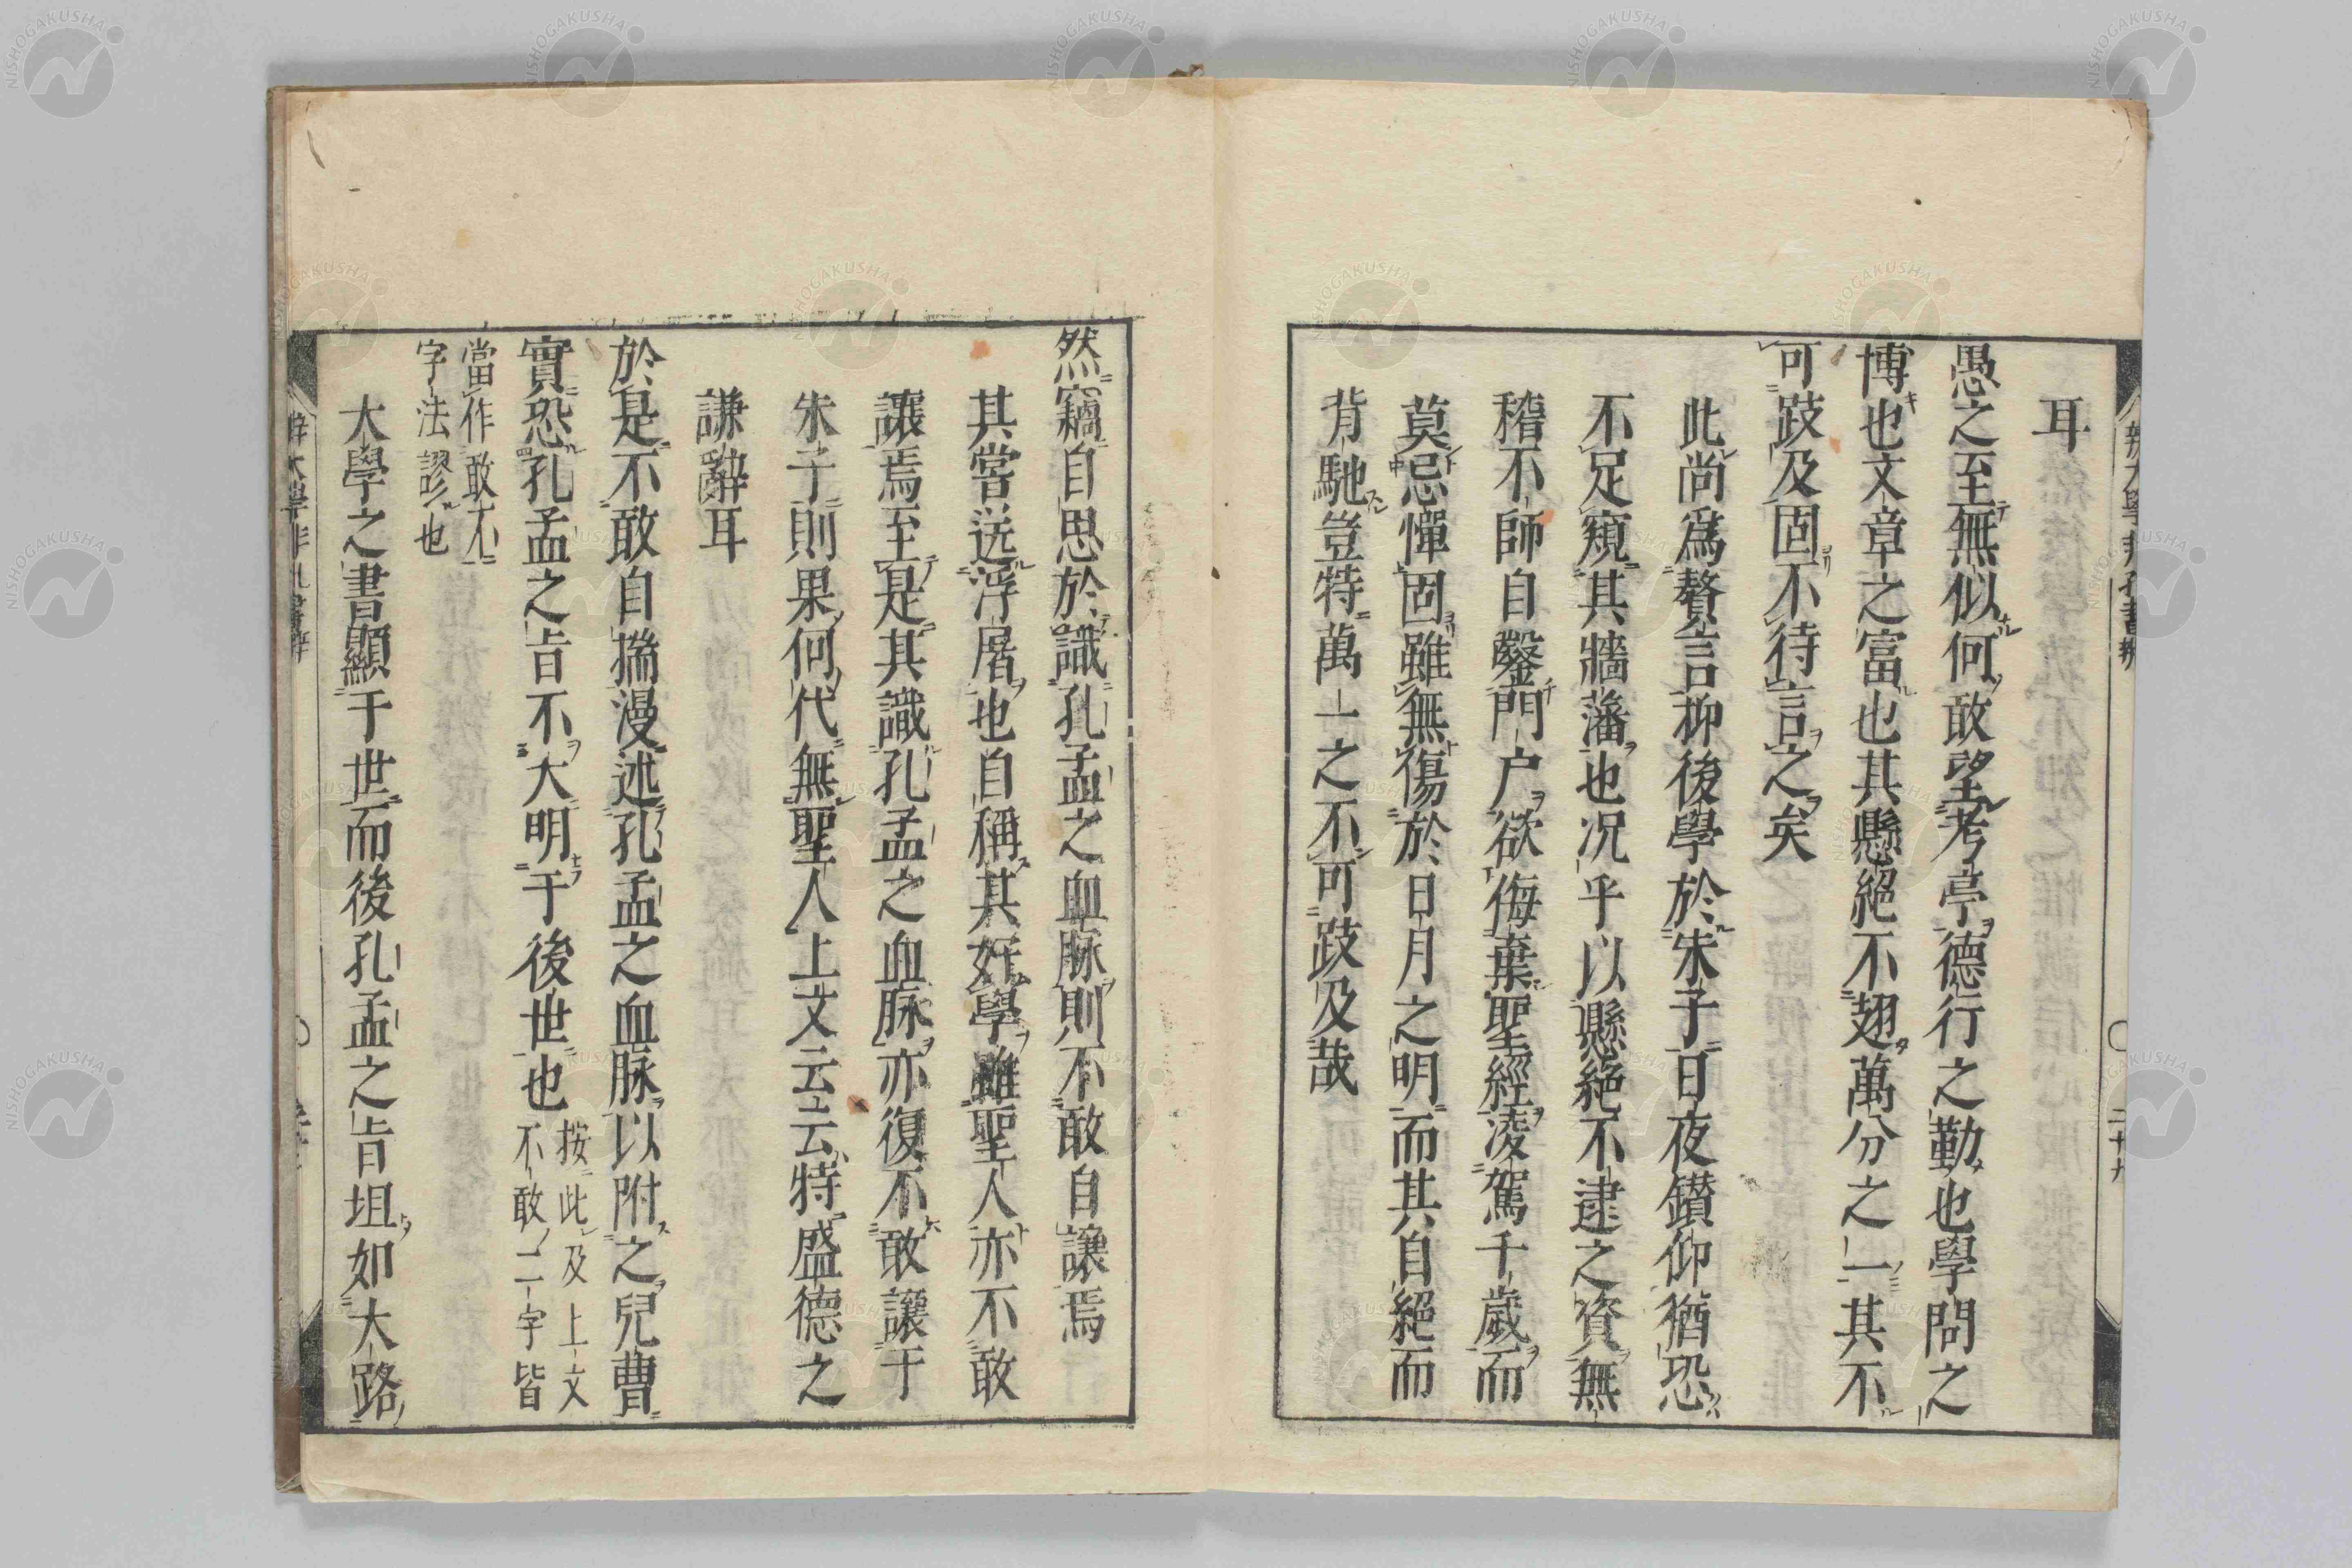 耳
愚之至無似何敢望考亭德行之勤也學問之
博也文章之富也其懸絕不翅萬分之一其不
可跂及固不待言之矣
此尚爲贅言抑後學於朱子日夜鑚仰猶恐
不足窺其牆藩也况乎以懸絕不逮之資無
稽不師自鑿門户欲侮棄聖經凌駕千歲而
莫忌憚固雖無傷於日月之明而其自絕而
背馳豈特萬一之不可跂及哉
然竊自思於識孔孟之血脉則不敢自讓焉
其嘗送浮屠也自稱其好學雖聖人亦不敢
讓焉至是其識孔孟之血脉亦復不敢讓于
朱子則果何代無聖人上文云云特盛德之
謙辭耳
於是不敢自揣漫述孔孟之血脉以附之兒曹
實恐孔孟之旨不大明于後世也按此及上文
不敢二字皆
當作敢不
字法謬也
大學之書顯于世而後孔孟之旨坦如大路
辨大學非孔書辨
二十九
NISHOGAKUSHA